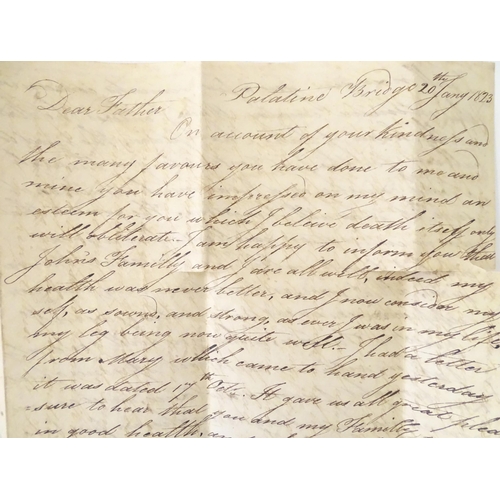 Palatine Bridge 20th Jany 1823
Dear Father
On account of your kindness and
the many favours you have done to me and
mine you have impressed on my mind an
esteem for you which I beleive death itself only
will obliterate. I am happy to inform you that
John's Familly and I are all well, indeed my
health was never better, and I now consider my
self, as sound, and strong, as ever I was in my life
my leg being now quite well. I had a letter
from Mary which came to hand yesterday
it was dated 17th Oct. It gave us all great plea
-sure to hear that you and my Familly
in good health, an